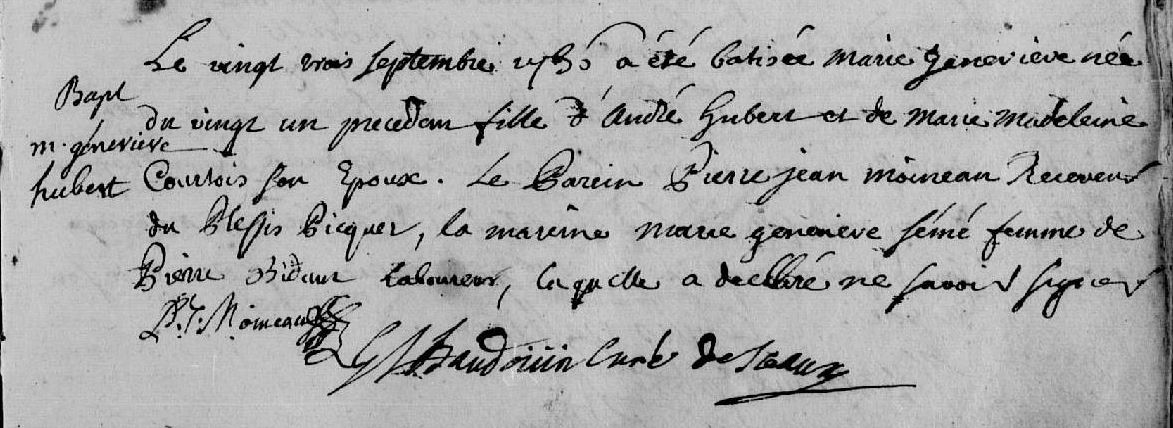 Le vingt trois septembre a été batisée marie geneviève née
Bapt
du vingt un precedan fille d'André hubert et de marie madeleine
m. génevieve
hubert
Courtois son Epoux. Le Parein Pierre jean moineau Receveur
du Plessis Picquet, la mareine marie genevieve fémé femme de
Pierre laboureur, laquelle a declaré ne savoir signer
P. J. Moineau
Baudouin Curé de Sceaux